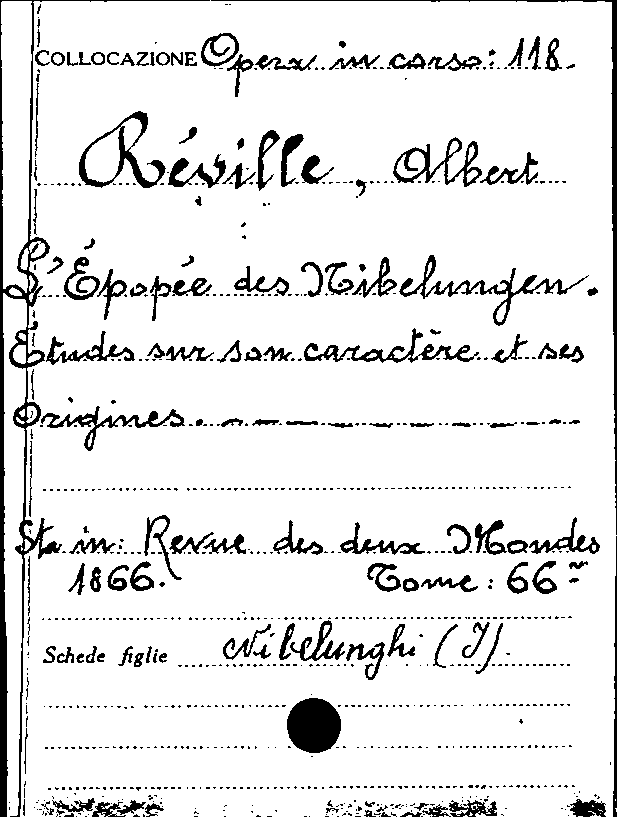 COLLOCAZIONE Opera in corso: 118.
Réville, Albert
L'Épopée des Nibelungen.
Études sur son caractère et ses
Origines.
Sta in: Revue des deux Mondes
1866. Tome: 66
Schede figlie Nibelunghi (I).